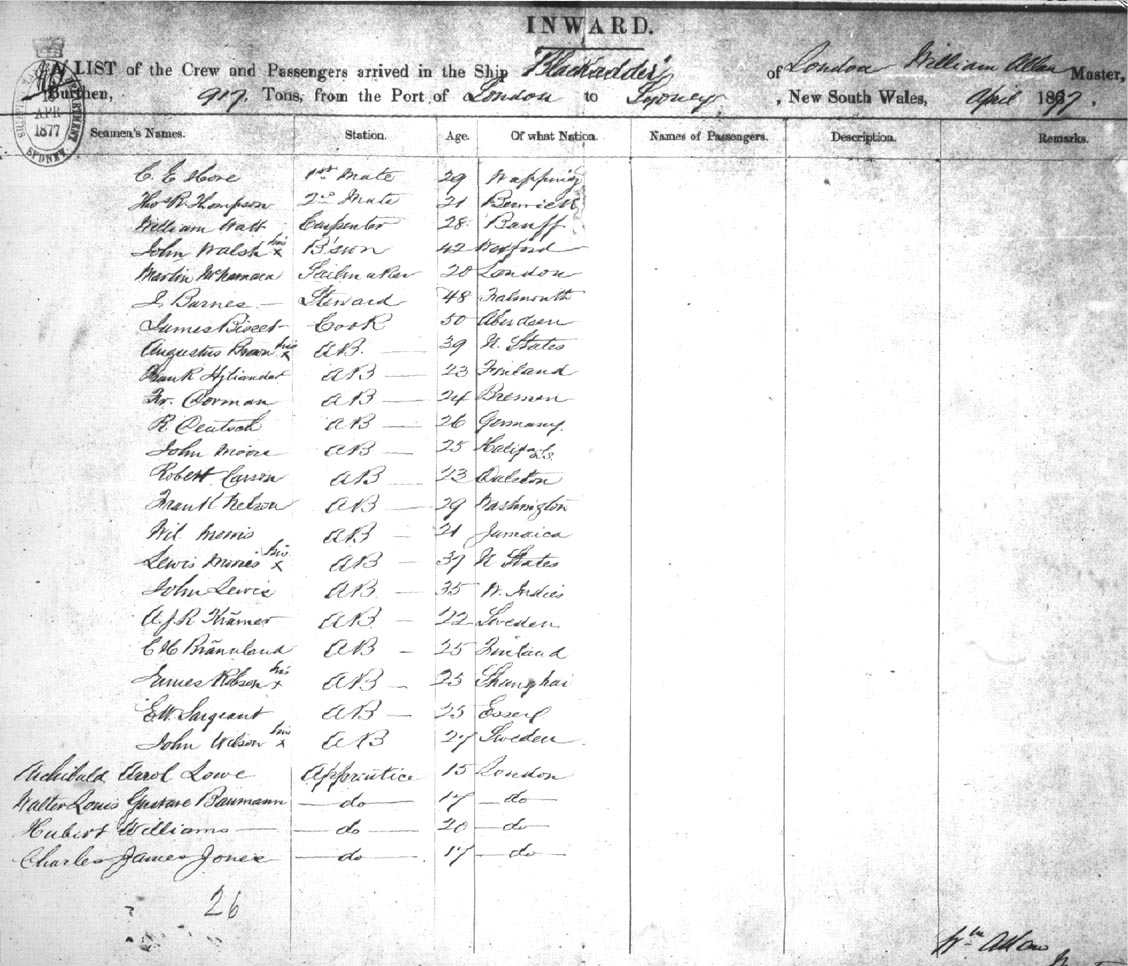 INWARD.
A LIST of the Crew and Passengers arrived in the Ship "Blackadder" of London William Allan Master,
Burthen, 917 Tons, from the Port of London to Sydney, New South Wales, April 1877.
APR
1877
SYDNEY
Seamen's Names. Station. Age. Of what Nation. Names of Passengers. Description. Remarks.
C. E. 1st Mate 29 Wapping
Thos R. Thompson 2nd Mate 21 Berwick
William Watt Carpenter 28 Banff
John Walsh his x B'sun 42 Wexford
Martin McNamara Sailmaker 20 London
J. Barnes — Steward 48 Falmouth
James Bisset Cook 50 Aberdeen
Augustus Brown his x AB. — 39 U States
Frank AB — 23 Finland
Fr. Dorman AB — 24 Bremen
R. Deutsch AB — 26 Germany.
John Moore AB — 25 Halifax
Robert Carson AB — 23 Dalston
Frank Nelson AB — 29 Washington
Wil Morris AB — 21 Jamaica
Lewis his x AB — 39 U States
John Lewis AB — 35 W. Indies
A J R Krämer AB — 22 Sweden
C H Brännlund AB — 25 Finland
James Robson his x AB — 25 Shanghai
E W. Sargeant AB — 25 Essex
John Wilson his x AB 27 Sweden
Archibald Arrol Lowe Apprentice 15 London
Walter Louis Gustave Baumann — do — 17 — do —
Hubert Williams — — do — 20 — do —
Charles James Jones — do — 17 — do —
26
Wm Allan